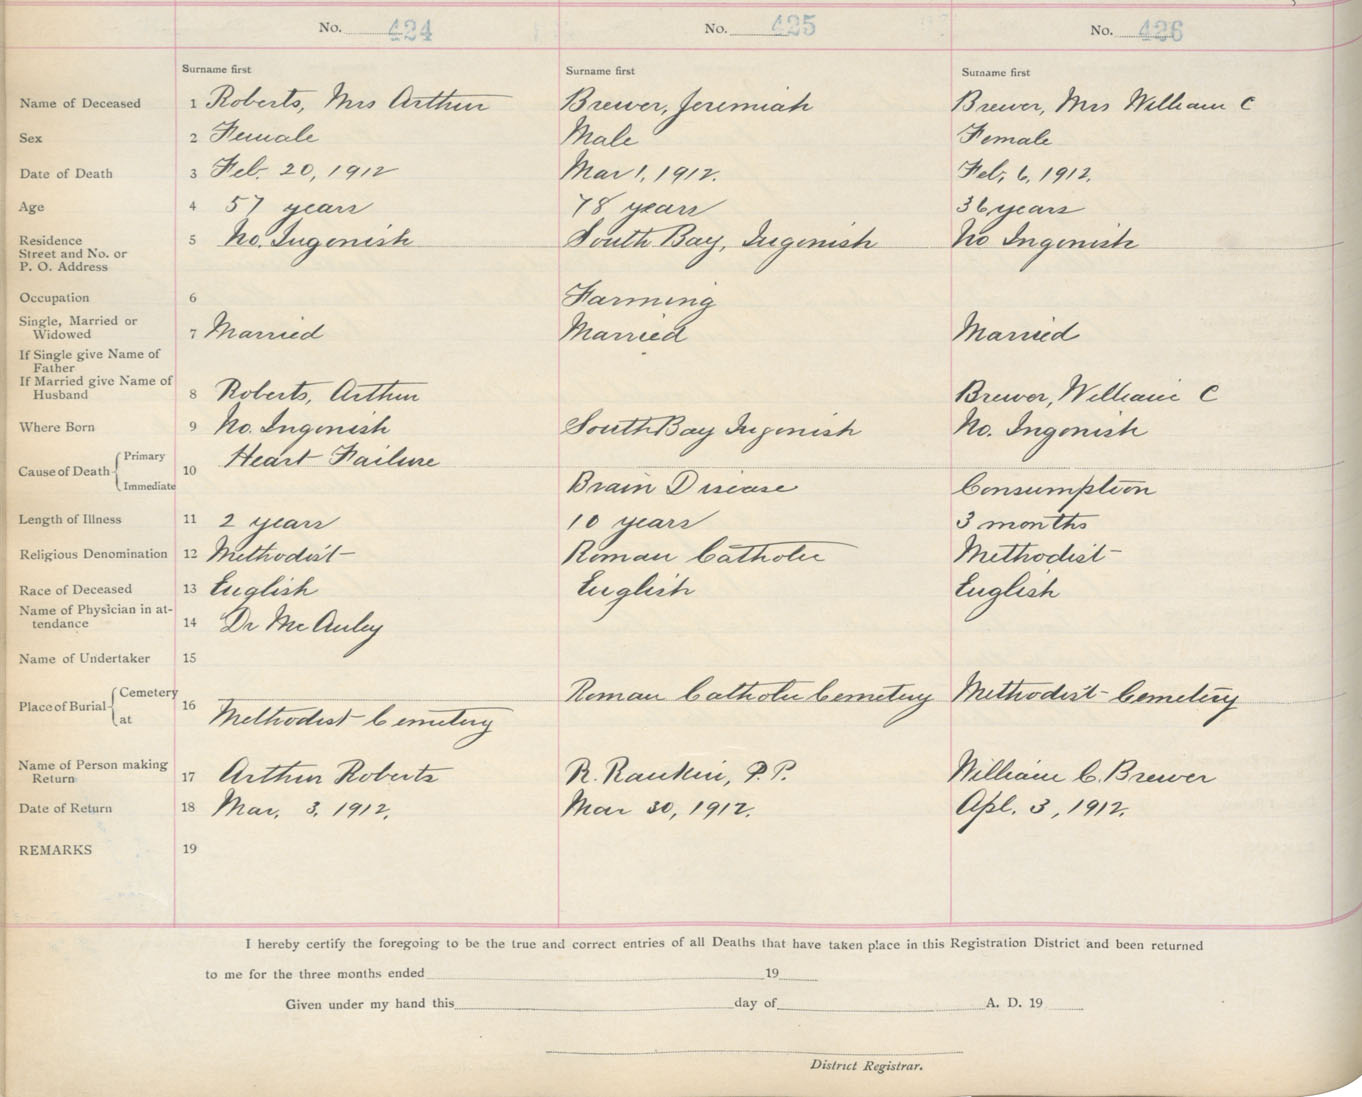 No. 424 No. 425 No. 426
Surname first Surname first Surname first
Name of Deceased 1 Roberts, Mrs Arthur Brewer, Jeremiah Brewer, Mrs William C
Sex 2 Female Male Female
Date of Death 3 Feb. 20, 1912 Mar 1, 1912. Feb, 6, 1912.
Age 4 57 years 78 years 36 years
Residence 5 No. Ingonish South Bay, Ingonish No Ingonish
Street and No. or
P. O. Address
Occupation 6 Farming
Single, Married or
Widowed 7 Married Married Married
If Single give Name of
Father
If Married give Name of
Husband 8 Roberts, Arthur Brewer, William C
Where Born 9 No. Ingonish South Bay Ingonish No. Ingonish
Primary Heart Failure
Cause of Death 10
Immediate Brain Disease Consumption
Length of Illness 11 2 years 10 years 3 months
Religious Denomination 12 Methodist Roman Catholic Methodist
Race of Deceased 13 English English English
Name of Physician in at-
tendance 14 Dr McAuley
Name of Undertaker 15
Cemetery Roman Catholic Cemetery Methodist Cemetery
Place of Burial 16
at Methodist Cemetery
Name of Person making
Return 17 Arthur Roberts R. Rankin, P.P. William C. Brewer
Date of Return 18 Mar. 3, 1912. Mar 30, 1912. Apl. 3, 1912.
REMARKS 19
I hereby certify the foregoing to be the true and correct entries of all Deaths that have taken place in this Registration District and been returned
to me for the three months ended 19
Given under my hand this day of A. D. 19
District Registrar.